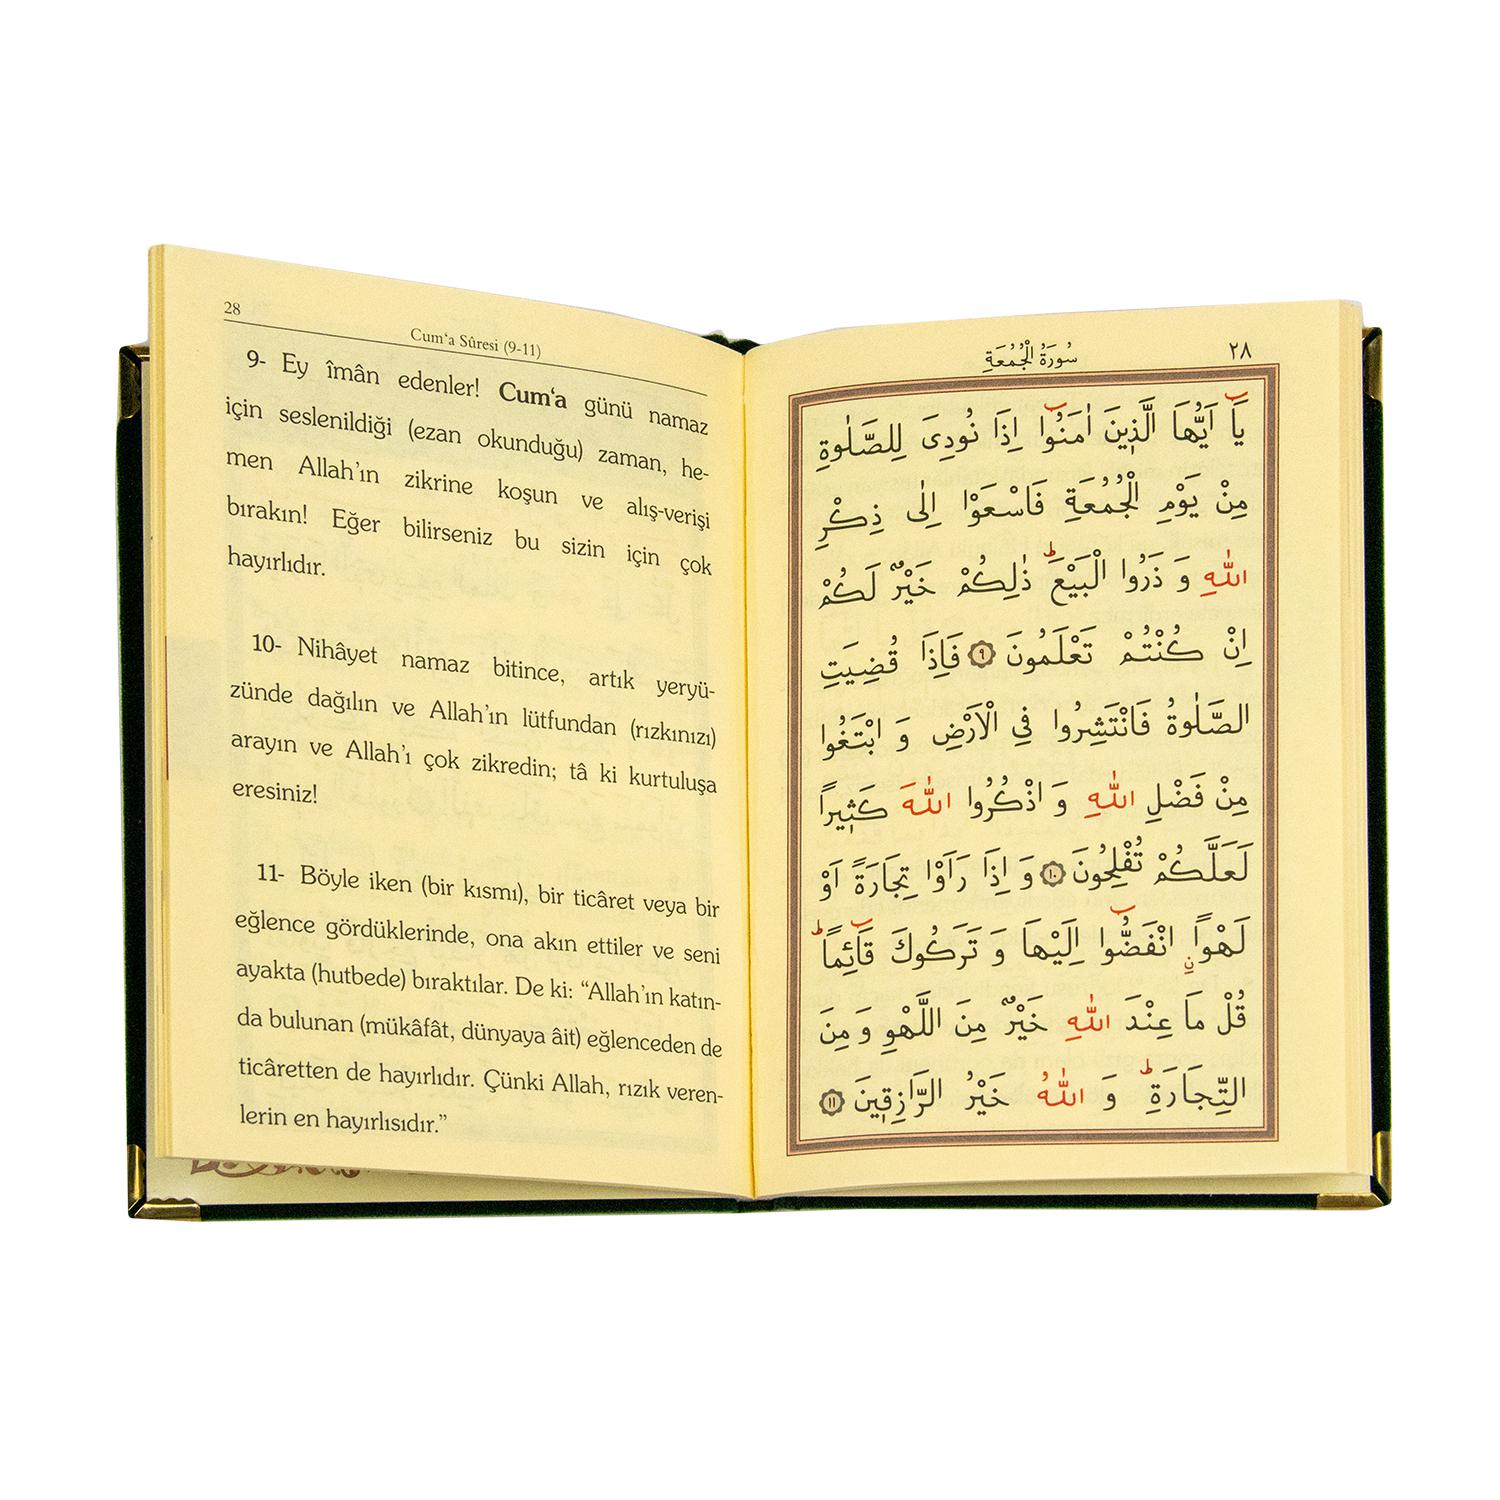 28
Cum‘a Sûresi (9-11)
9- Ey îmân edenler! Cum‘a günü namaz
için seslenildiği (ezan okunduğu) zaman, he-
men Allah’ın zikrine koşun ve alış-verişi
bırakın! Eğer bilirseniz bu sizin için çok
hayırlıdır.
10- Nihâyet namaz bitince, artık yeryü-
zünde dağılın ve Allah’ın lütfundan (rızkınızı)
arayın ve Allah’ı çok zikredin; tâ ki kurtuluşa
eresiniz!
11- Böyle iken (bir kısmı), bir ticâret veya bir
eğlence gördüklerinde, ona akın ettiler ve seni
ayakta (hutbede) bıraktılar. De ki: “Allah’ın katın-
da bulunan (mükâfât, dünyaya âit) eğlenceden de
ticâretten de hayırlıdır. Çünki Allah, rızık veren-
lerin en hayırlısıdır.”
سُورَةُ الْجُمُعَةِ
٢٨
يَٓا اَيُّهَا الَّذ۪ينَ اٰمَنُٓوا اِذَا نُودِىَ لِلصَّلٰوةِ
مِنْ يَوْمِ الْجُمُعَةِ فَاسْعَوْا اِلٰى ذِكْرِ
اللّٰهِ وَ ذَرُوا الْبَيْعَۜ ذٰلِكُمْ خَيْرٌ لَكُمْ
اِنْ كُنْتُمْ تَعْلَمُونَ ٩ فَاِذَا قُضِيَتِ
الصَّلٰوةُ فَانْتَشِرُوا فِي الْاَرْضِ وَ ابْتَغُوا
مِنْ فَضْلِ اللّٰهِ وَ اذْكُرُوا اللّٰهَ كَث۪يراً
لَعَلَّكُمْ تُفْلِحُونَ ١٠ وَ اِذَا رَاَوْا تِجَارَةً اَوْ
لَهْواًۨ انْفَضُّٓوا اِلَيْهَا وَ تَرَكُوكَ قَٓائِماًۜ
قُلْ مَا عِنْدَ اللّٰهِ خَيْرٌ مِنَ اللَّهْوِ وَ مِنَ
التِّجَارَةِۜ وَ اللّٰهُ خَيْرُ الرَّازِق۪ينَ ١١